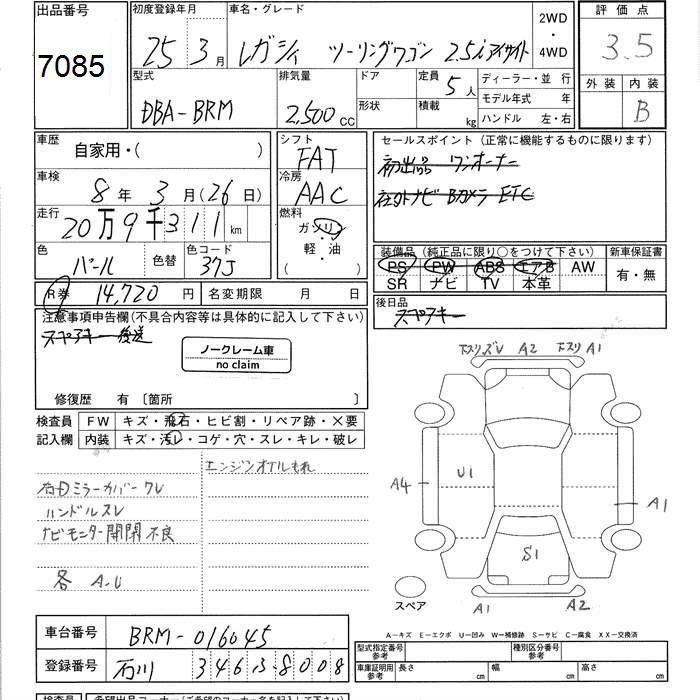 出品番号
7085
初度登録年月
25 3月
車名・グレード
レガシィ ツーリングワゴン 2.5iアイサイト
2WD
・
4WD
評価点
3.5
外装 内装
B
型式
DBA-BRM
排気量
2,500 cc
ドア
形状
定員
5人
積載
kg
ディーラー・並行
モデル年式 年
ハンドル 左・右
車歴
自家用・( )
車検
8年 3月(26日)
走行
20万9千311 km
色
パール
色替
色コード
37J
シフト
FAT
冷房
AAC
燃料
ガソリン
軽・油
( )
セールスポイント(正常に機能するものに限ります)
初出品 ワンオーナー
社外ナビ Bカメラ ETC
装備品(純正品に限り○をつけて下さい)
PS PW ABS エアB AW
SR ナビ TV 本革
新車保証書
有・無
R券 14,720円
名変期限 月 日
後日品
スペアキー
注意事項申告欄(不具合内容等は具体的に記入して下さい)
スペアキー後送
ノークレーム車
no claim
修復歴 有〔箇所 〕
検査員
記入欄
FW キズ・飛石・ヒビ割・リペア跡・×要
内装 キズ・汚れ・コゲ・穴・スレ・キレ・破レ
エンジンオイルもれ
右Dミラーカバー ワレ
ハンドルスレ
ナビモニター開閉不良
各 A-U
下スリズレ A2 下スリ A1
A4
U1
A1
S1
A1 A2
スペア
A-キズ E-エクボ U-凹み W-補修跡 S-サビ C-腐食 XX-交換済
車台番号
BRM-016045
登録番号
石川 346 ひ 8008
型式指定番号
参考
種別区分番号
参考
車庫証明用
参考
長さ cm
幅 cm
高さ cm